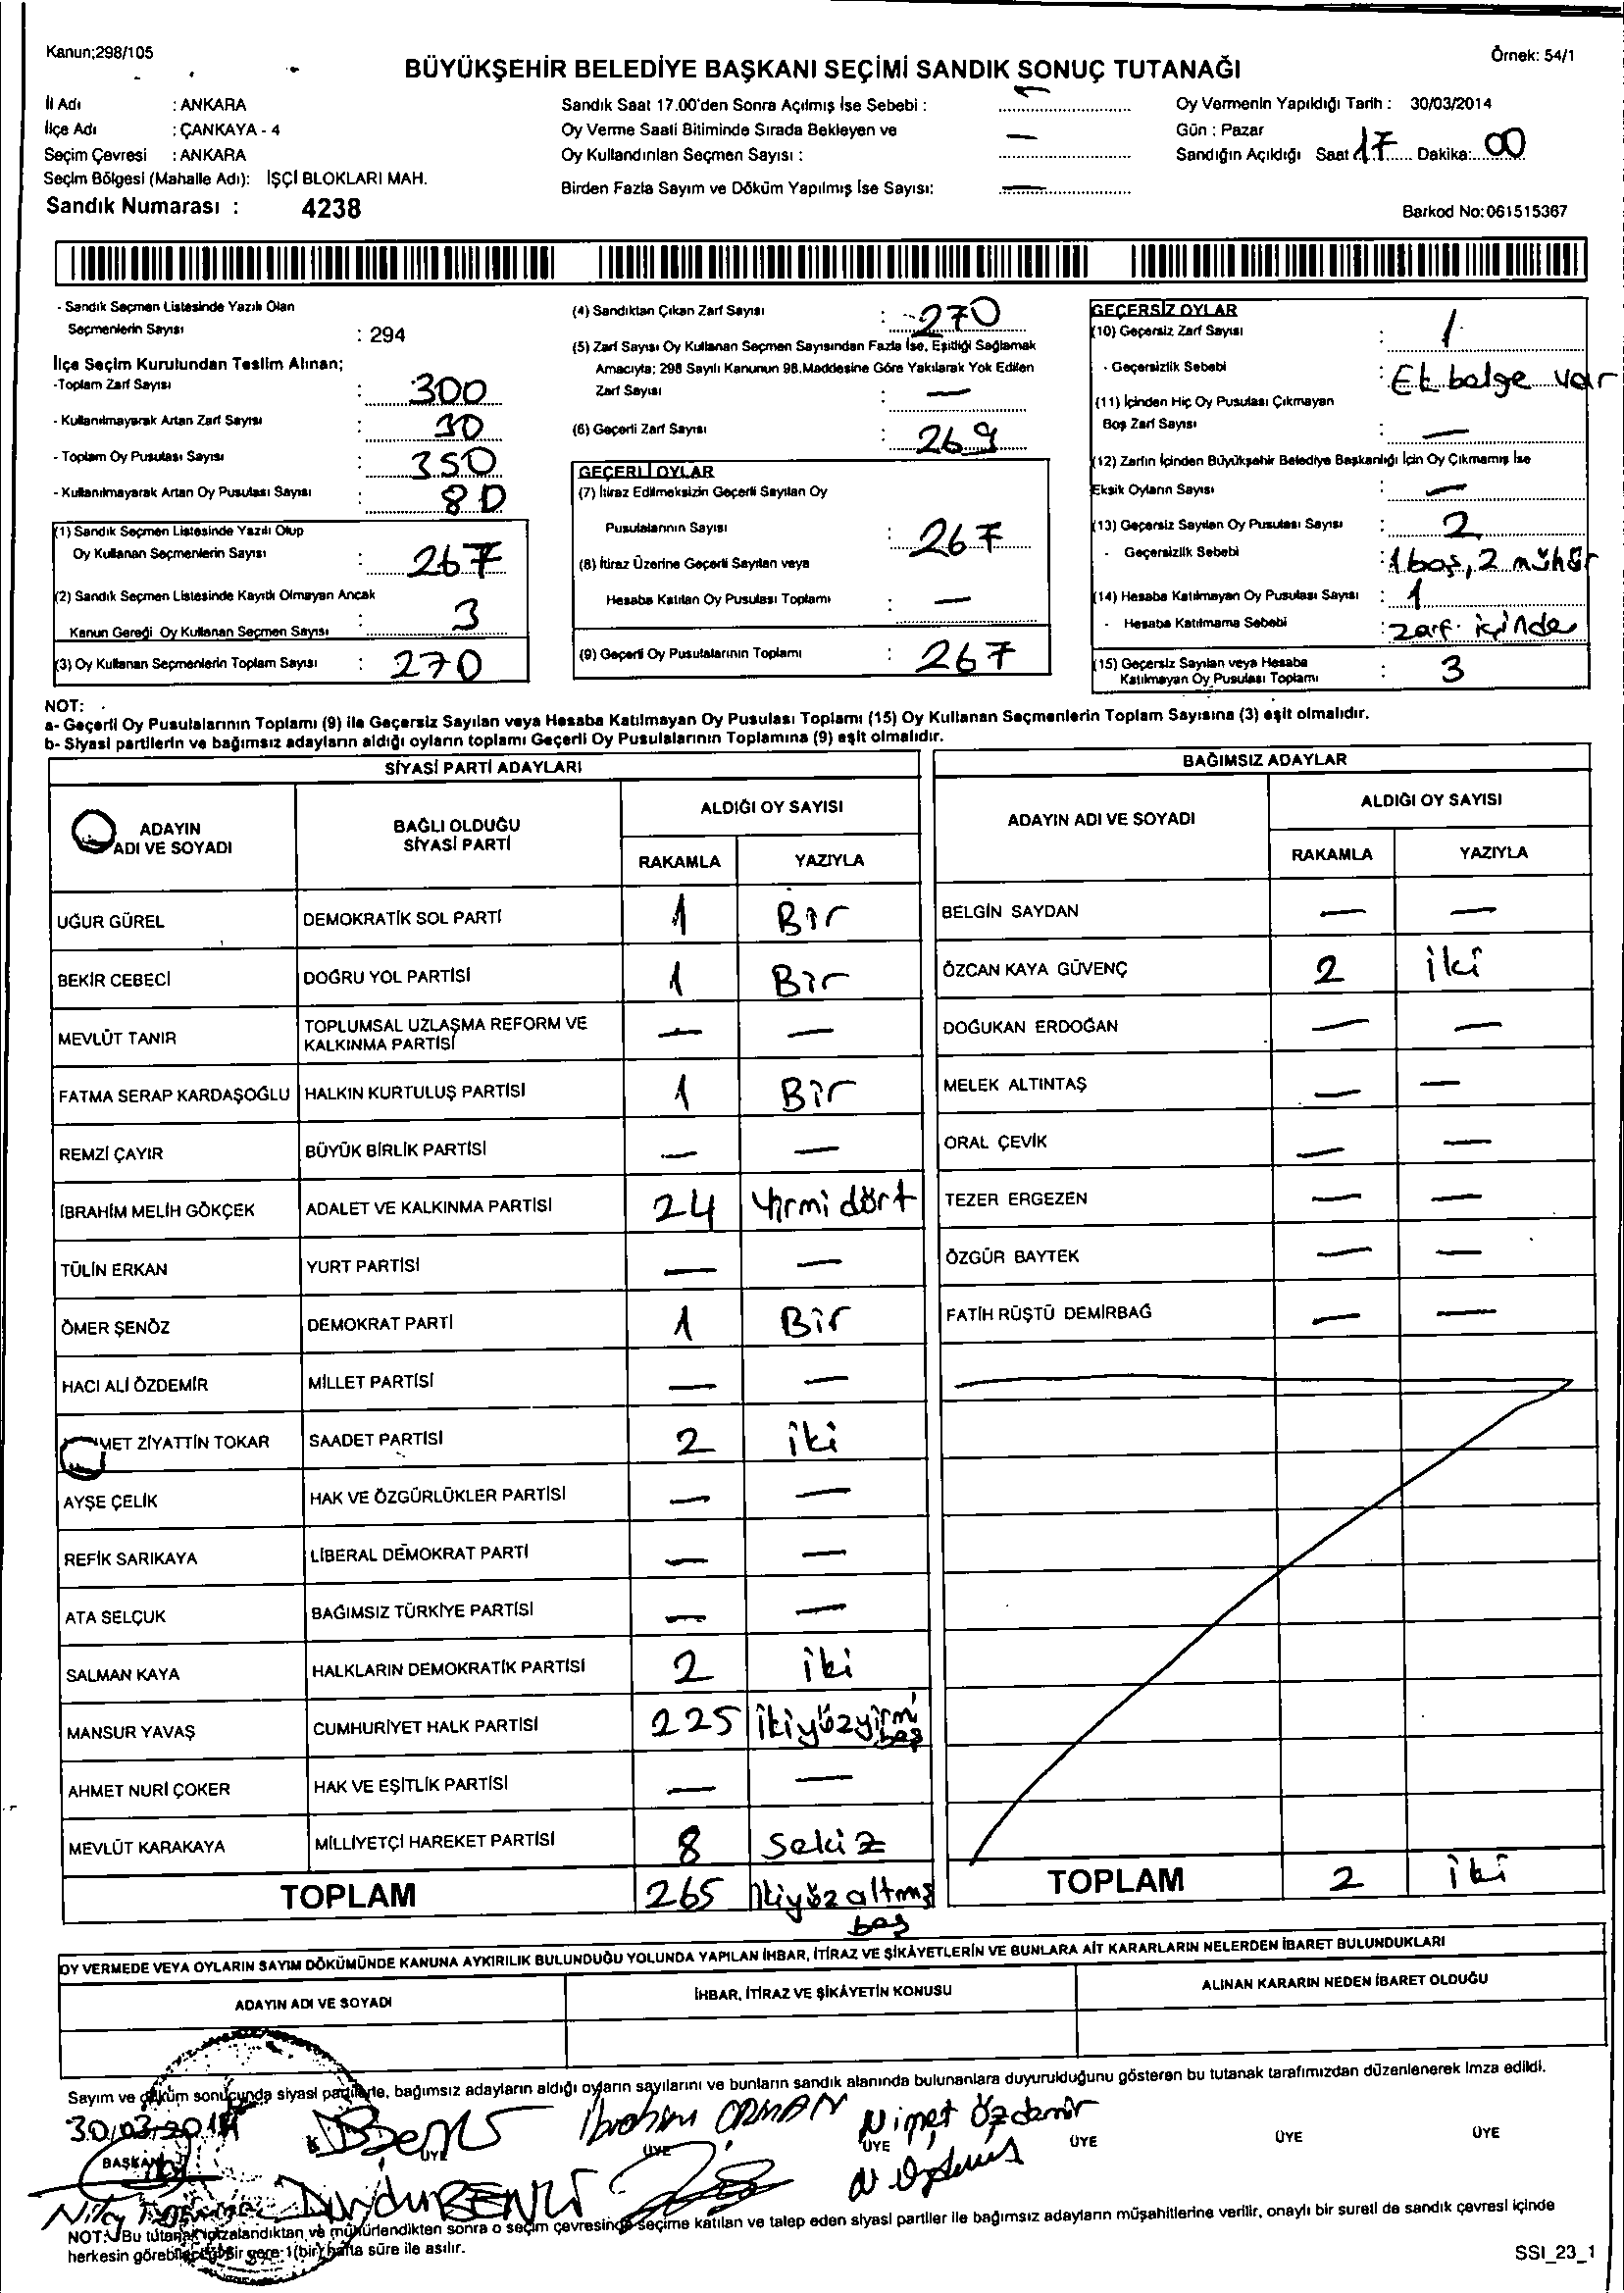 Kanun;298/105
Örnek: 54/1
BÜYÜKŞEHİR BELEDİYE BAŞKANI SEÇİMİ SANDIK SONUÇ TUTANAĞI
İl Adı : ANKARA
İlçe Adı : ÇANKAYA - 4
Seçim Çevresi : ANKARA
Seçim Bölgesi (Mahalle Adı): İŞÇİ BLOKLARI MAH.
Sandık Numarası : 4238
Sandık Saat 17.00'den Sonra Açılmış İse Sebebi : —
Oy Verme Saati Bitiminde Sırada Bekleyen ve
Oy Kullandırılan Seçmen Sayısı : —
Birden Fazla Sayım ve Döküm Yapılmış İse Sayısı: —
Oy Vermenin Yapıldığı Tarih : 30/03/2014
Gün : Pazar
Sandığın Açıldığı Saat 17 Dakika: 00
Barkod No:061515367
- Sandık Seçmen Listesinde Yazılı Olan
Seçmenlerin Sayısı : 294
İlçe Seçim Kurulundan Teslim Alınan;
-Toplam Zarf Sayısı : 300
- Kullanılmayarak Artan Zarf Sayısı : 30
- Toplam Oy Pusulası Sayısı : 350
- Kullanılmayarak Artan Oy Pusulası Sayısı : 80
(1) Sandık Seçmen Listesinde Yazılı Olup
Oy Kullanan Seçmenlerin Sayısı : 267
(2) Sandık Seçmen Listesinde Kayıtlı Olmayan Ancak
Kanun Gereği Oy Kullanan Seçmen Sayısı : 3
(3) Oy Kullanan Seçmenlerin Toplam Sayısı : 270
(4) Sandıktan Çıkan Zarf Sayısı : 270
(5) Zarf Sayısı Oy Kullanan Seçmen Sayısından Fazla İse, Eşitliği Sağlamak
Amacıyla; 298 Sayılı Kanunun 98.Maddesine Göre Yakılarak Yok Edilen
Zarf Sayısı : —
(6) Geçerli Zarf Sayısı : 269
GEÇERLİ OYLAR
(7) İtiraz Edilmeksizin Geçerli Sayılan Oy
Pusulalarının Sayısı : 267
(8) İtiraz Üzerine Geçerli Sayılan veya
Hesaba Katılan Oy Pusulası Toplamı : —
(9) Geçerli Oy Pusulalarının Toplamı : 267
GEÇERSİZ OYLAR
(10) Geçersiz Zarf Sayısı : 1
- Geçersizlik Sebebi : Ek belge var
(11) İçinden Hiç Oy Pusulası Çıkmayan
Boş Zarf Sayısı : —
(12) Zarfın İçinden Büyükşehir Belediye Başkanlığı İçin Oy Çıkmamış İse
Eksik Oyların Sayısı : —
(13) Geçersiz Sayılan Oy Pusulası Sayısı : 2
- Geçersizlik Sebebi : 1 boş, 2 mühür
(14) Hesaba Katılmayan Oy Pusulası Sayısı : 1
- Hesaba Katılmama Sebebi : zarf içinde
(15) Geçersiz Sayılan veya Hesaba
Katılmayan Oy Pusulası Toplamı : 3
NOT:
a- Geçerli Oy Pusulalarının Toplamı (9) ile Geçersiz Sayılan veya Hesaba Katılmayan Oy Pusulası Toplamı (15) Oy Kullanan Seçmenlerin Toplam Sayısına (3) eşit olmalıdır.
b- Siyasi partilerin ve bağımsız adayların aldığı oyların toplamı Geçerli Oy Pusulalarının Toplamına (9) eşit olmalıdır.
SİYASİ PARTİ ADAYLARI
ADAYIN ADI VE SOYADI BAĞLI OLDUĞU SİYASİ PARTİ ALDIĞI OY SAYISI
RAKAMLA YAZIYLA
UĞUR GÜREL DEMOKRATİK SOL PARTİ 1 Bir
BEKİR CEBECİ DOĞRU YOL PARTİSİ 1 Bir
MEVLÜT TANIR TOPLUMSAL UZLAŞMA REFORM VE KALKINMA PARTİSİ — —
FATMA SERAP KARDAŞOĞLU HALKIN KURTULUŞ PARTİSİ 1 Bir
REMZİ ÇAYIR BÜYÜK BİRLİK PARTİSİ — —
İBRAHİM MELİH GÖKÇEK ADALET VE KALKINMA PARTİSİ 24 Yirmi dört
TÜLİN ERKAN YURT PARTİSİ — —
ÖMER ŞENÖZ DEMOKRAT PARTİ 1 Bir
HACI ALİ ÖZDEMİR MİLLET PARTİSİ — —
MET ZİYATTİN TOKAR SAADET PARTİSİ 2 iki
AYŞE ÇELİK HAK VE ÖZGÜRLÜKLER PARTİSİ — —
REFİK SARIKAYA LİBERAL DEMOKRAT PARTİ — —
ATA SELÇUK BAĞIMSIZ TÜRKİYE PARTİSİ — —
SALMAN KAYA HALKLARIN DEMOKRATİK PARTİSİ 2 iki
MANSUR YAVAŞ CUMHURİYET HALK PARTİSİ 225 İkiyüzyirmi beş
AHMET NURİ ÇOKER HAK VE EŞİTLİK PARTİSİ — —
MEVLÜT KARAKAYA MİLLİYETÇİ HAREKET PARTİSİ 8 Sekiz
TOPLAM 265 İkiyüz altmış beş
BAĞIMSIZ ADAYLAR
ADAYIN ADI VE SOYADI ALDIĞI OY SAYISI
RAKAMLA YAZIYLA
BELGİN SAYDAN — —
ÖZCAN KAYA GÜVENÇ 2 iki
DOĞUKAN ERDOĞAN — —
MELEK ALTINTAŞ — —
ORAL ÇEVİK — —
TEZER ERGEZEN — —
ÖZGÜR BAYTEK — —
FATİH RÜŞTÜ DEMİRBAĞ — —
TOPLAM 2 iki
OY VERMEDE VEYA OYLARIN SAYIM DÖKÜMÜNDE KANUNA AYKIRILIK BULUNDUĞU YOLUNDA YAPILAN İHBAR, İTİRAZ VE ŞİKÂYETLERİN VE BUNLARA AİT KARARLARIN NELERDEN İBARET BULUNDUKLARI
ADAYIN ADI VE SOYADI İHBAR, İTİRAZ VE ŞİKÂYETİN KONUSU ALINAN KARARIN NEDEN İBARET OLDUĞU
Sayım ve döküm sonucunda siyasi partilerle, bağımsız adayların aldığı oyların sayılarını ve bunların sandık alanında bulunanlara duyurulduğunu gösteren bu tutanak tarafımızdan düzenlenerek imza edildi.
30/03/2014
İbrahim ORMAN Nimet Özdemir
BAŞKAN ÜYE ÜYE ÜYE ÜYE ÜYE ÜYE
Durdu BENLİ
NOT: Bu tutanak imzalandıktan ve mühürlendikten sonra o seçim çevresinde seçime katılan ve talep eden siyasi partiler ile bağımsız adayların müşahitlerine verilir, onaylı bir sureti de sandık çevresi içinde
herkesin görebileceği bir yere 1(bir) hafta süre ile asılır.
SSI_23_1